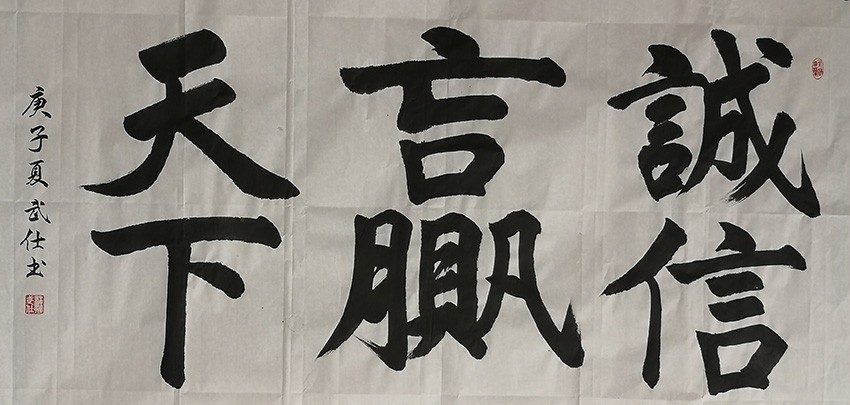 誠信
赢
天下
庚子夏武仕书